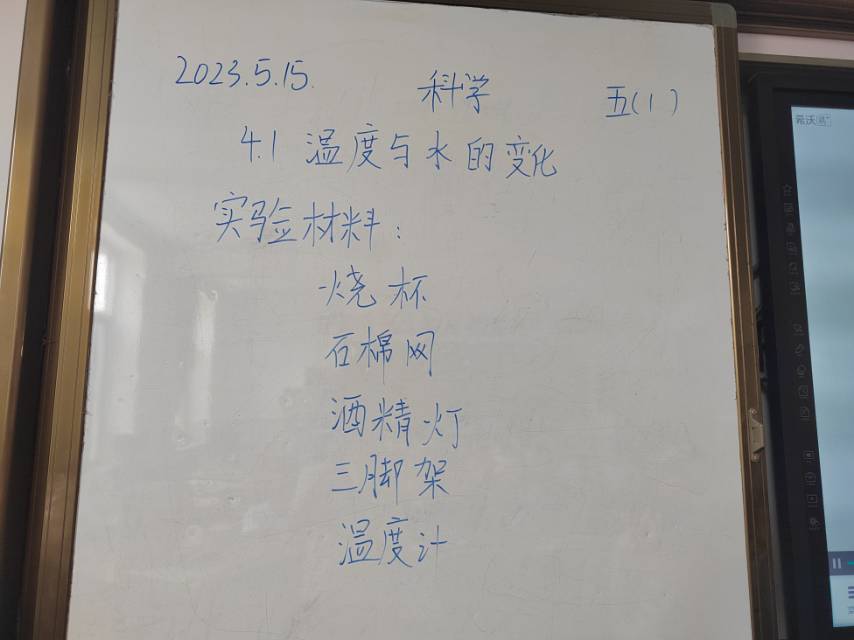 2023.5.15. 科学 五(1)
4.1 温度与水的变化
实验材料：
烧杯
石棉网
酒精灯
三脚架
温度计
希沃